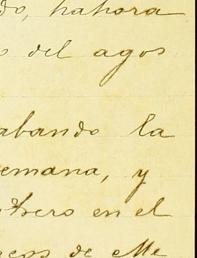 do, hahora
o del agos
abando la
emana, y
otrero en el
de Me